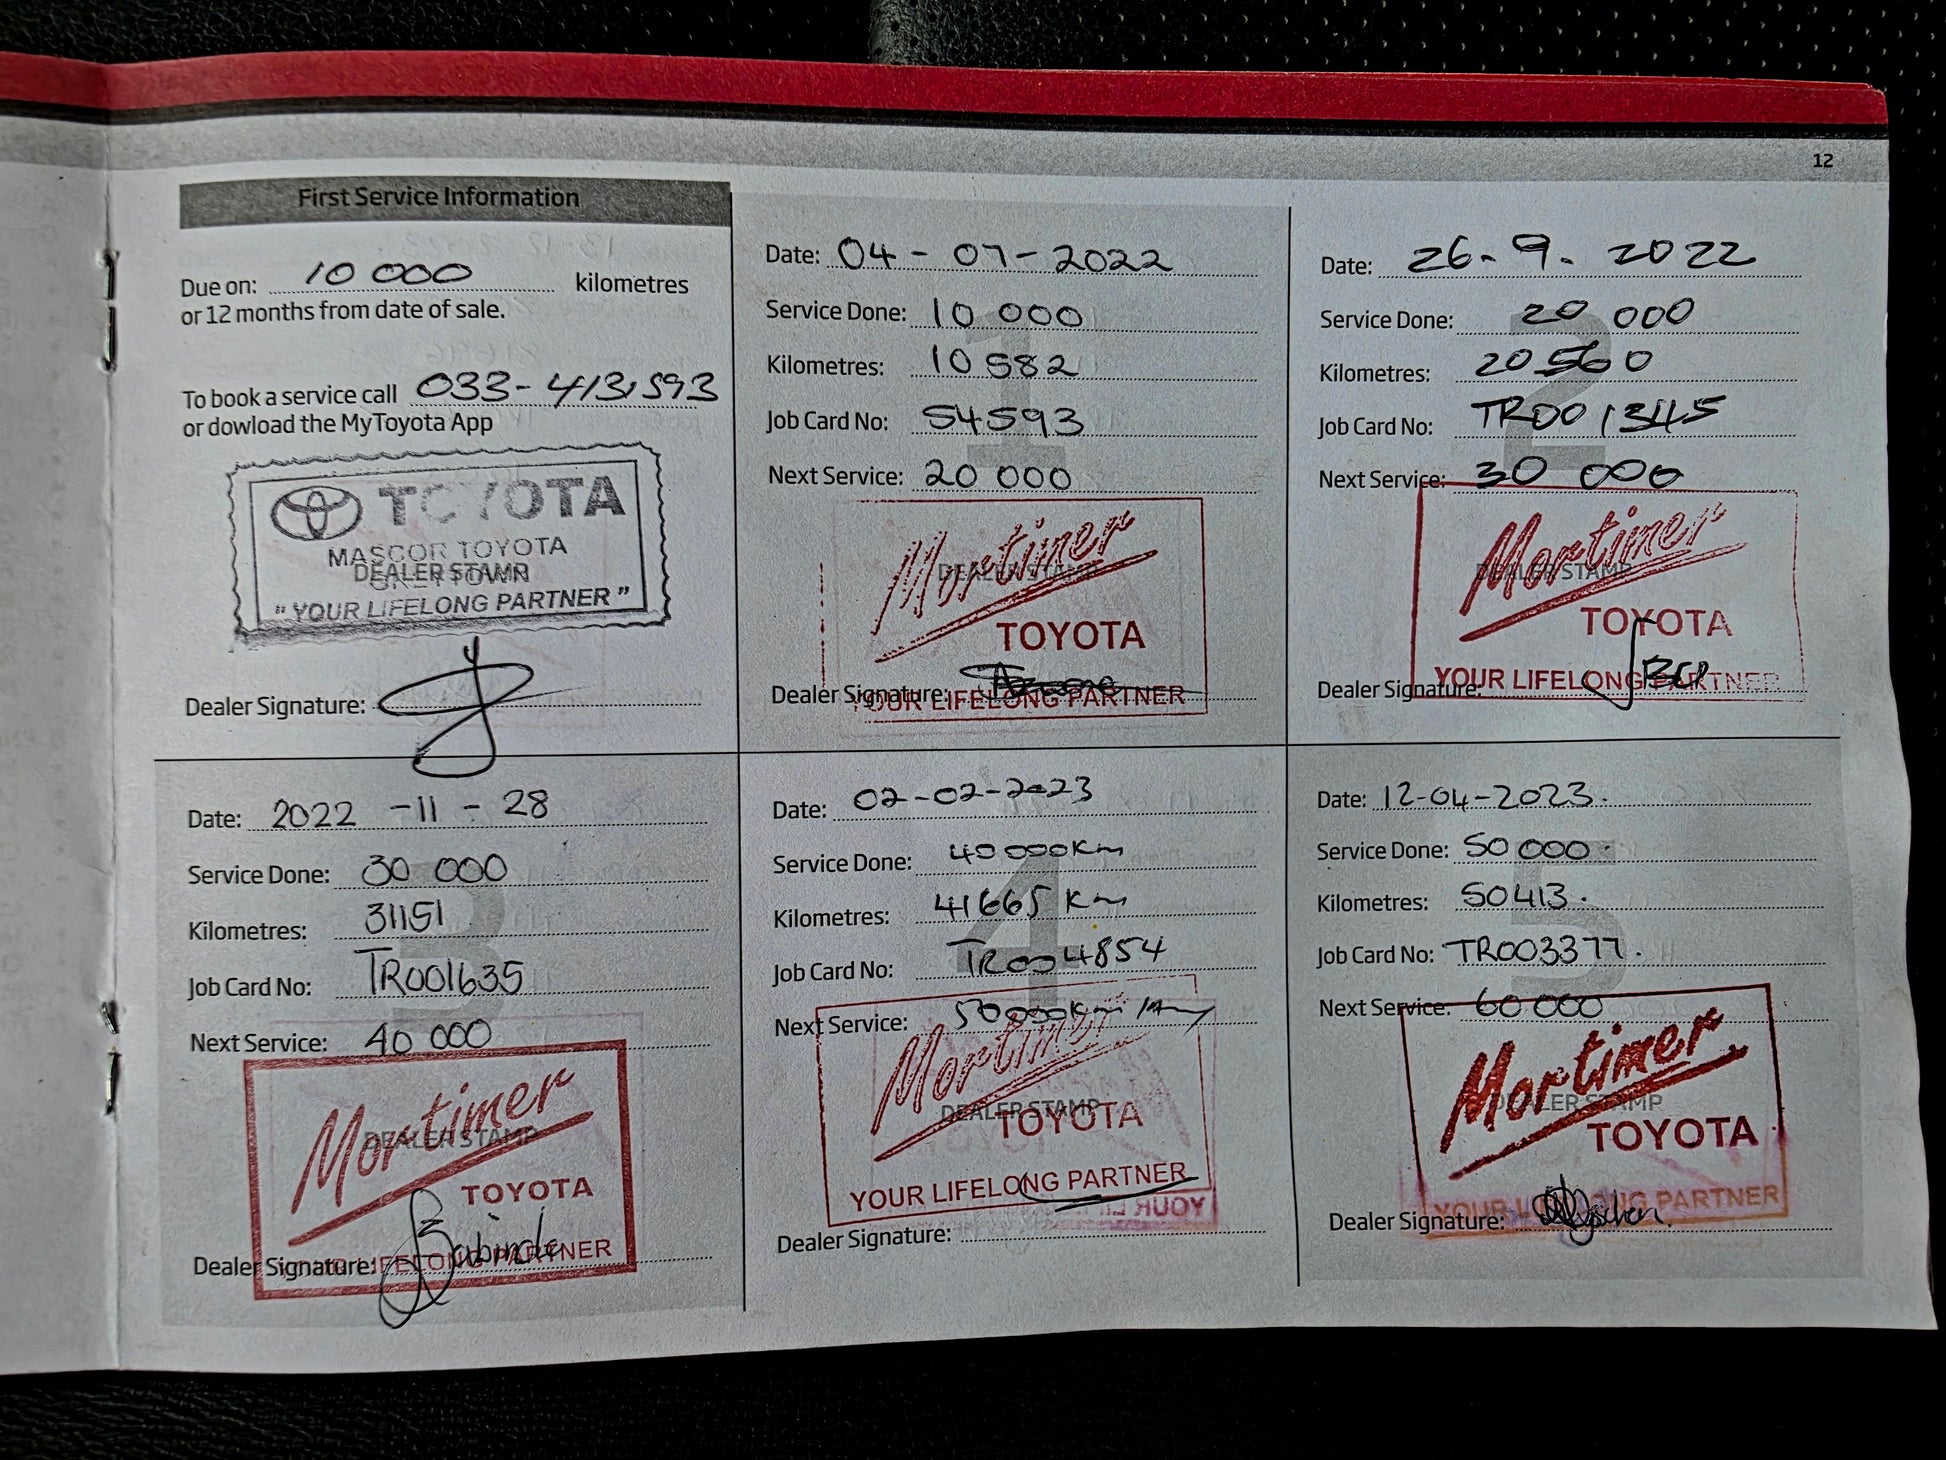 12
First Service Information
Due on: 10 000 kilometres
or 12 months from date of sale.
To book a service call 033-413,593
or dowload the MyToyota App
TOYOTA
MASCOR TOYOTA
DEALER STAMP
"YOUR LIFELONG PARTNER"
Dealer Signature:
Date: 04-07-2022
Service Done: 10 000
Kilometres: 10582
Job Card No: 54593
Next Service: 20 000
Mortimer
DEALER STAMP
TOYOTA
Dealer Signature:
YOUR LIFELONG PARTNER
Date: 26.9.2022
Service Done: 20 000
Kilometres: 20560
Job Card No:
Next Service: 30 000
Mortimer
DEALER STAMP
TOYOTA
YOUR LIFELONG PARTNER
Dealer Signature:
Date: 2022-11-28
Service Done: 30 000
Kilometres: 31151
Job Card No: TR001635
Next Service: 40 000
Mortimer
DEALER STAMP
TOYOTA
YOUR LIFELONG PARTNER
Dealer Signature:
Date: 02-02-2023
Service Done: 40 000Km
Kilometres: 41665 Km
Job Card No: TR004854
Next Service: 50 000Km
Mortimer
DEALER STAMP
TOYOTA
YOUR LIFELONG PARTNER
Dealer Signature:
Date: 12-04-2023.
Service Done: 50 000.
Kilometres: 50413.
Job Card No: TR003377.
Next Service: 60 000
Mortimer
DEALER STAMP
TOYOTA
YOUR LIFELONG PARTNER
Dealer Signature: